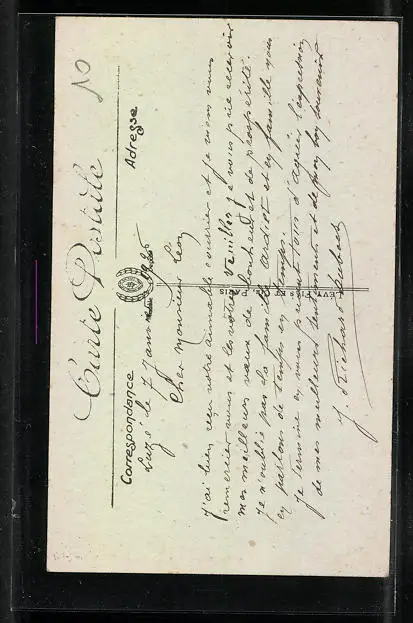 10
Carte Postale
Correspondance
Adresse
Luzé le 7 Janvier
Cher Monsieur Leon
J'ai bien reçu votre aimable courrier et je viens vous
remercier vous et les votre Veuillez je vous prie recevoir
mes meilleurs vœux de bonheur et de prospérité.
Je n'oublie pas la famille et en famille nous
en parlons de temps en temps.
Je termine en vous priant tous d'agréer l'expression
de mes meilleurs sentiments et de mon bon souvenir
J. Richard
LEVY FILS ET Cie PARIS